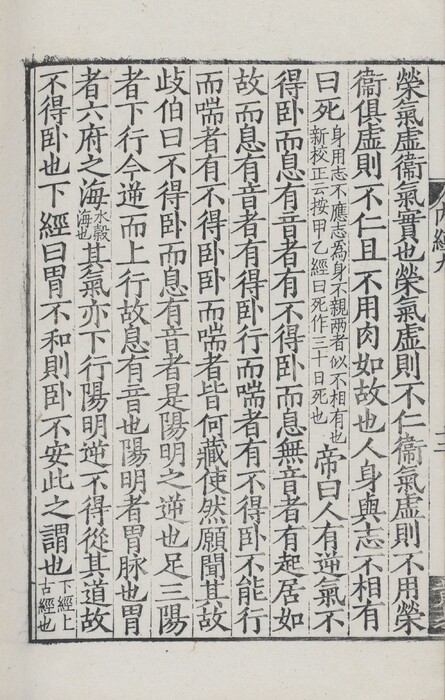 榮氣虛衞氣實也榮氣虛則不仁衞氣虛則不用榮
衞俱虛則不仁且不用肉如故也人身與志不相有
曰死身用志不應志為身不親兩者似不相有也
新校正云按甲乙經曰死作三十日死也帝曰人有逆氣不
得卧而息有音者有不得卧而息無音者有起居如
故而息有音者有得卧行而喘者有不得卧不能行
而喘者有不得卧卧而喘者皆何藏使然願聞其故
歧伯曰不得卧而息有音者是陽明之逆也足三陽
者下行今逆而上行故息有音也陽明者胃脉也胃
者六府之海水穀海也其氣亦下行陽明逆不得從其道故
不得卧也下經曰胃不和則卧不安此之謂也下經上古經也